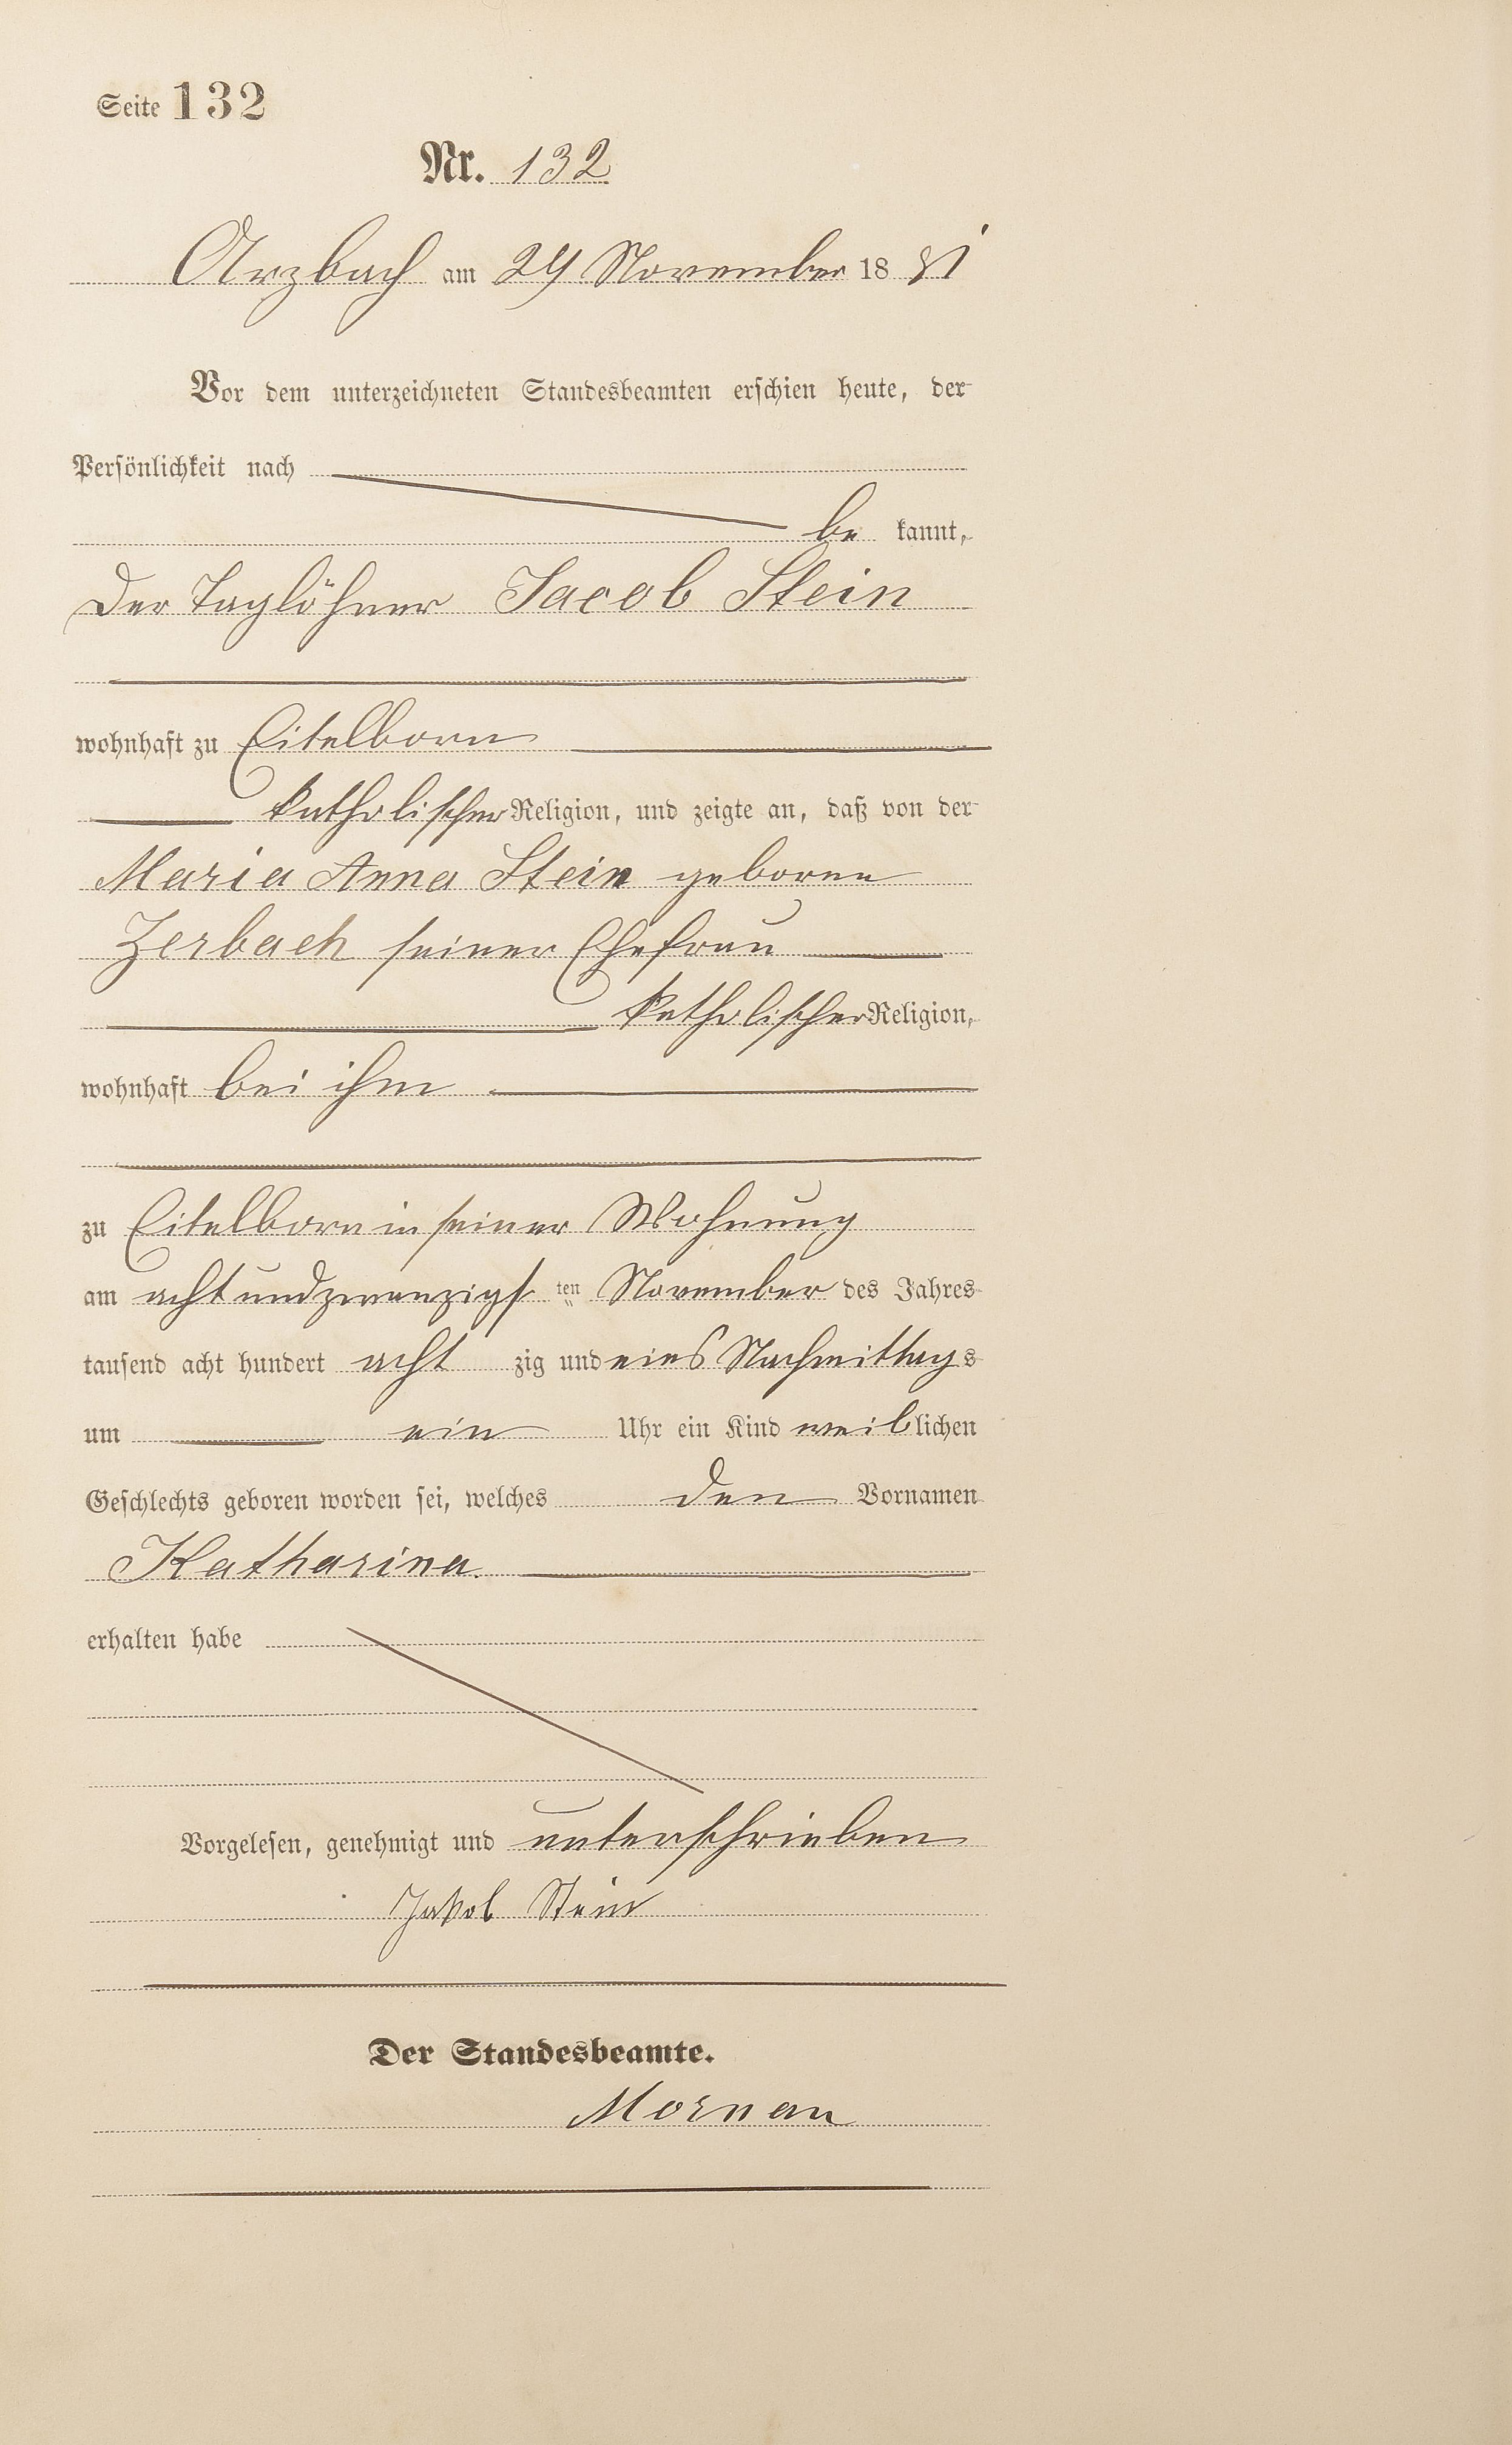 Seite 132
Nr. 132
Arzbach am 29 November 1881
Vor dem unterzeichneten Standesbeamten erschien heute, der
Persönlichkeit nach
be kannt,
Der Taglöhner Jacob Stein
wohnhaft zu Eitelborn
katholischer Religion, und zeigte an, daß von der
Maria Anna Stein geborene
Zerbach seiner Ehefrau
katholischer Religion,
wohnhaft bei ihm
zu Eitelborn in seiner Wohnung
am achtundzwanzigsten November des Jahres
tausend acht hundert acht zig und eins Nachmittags
um ein Uhr ein Kind weiblichen
Geschlechts geboren worden sei, welches den Vornamen
Katharina
erhalten habe
Vorgelesen, genehmigt und unterschrieben
Jakob Stein
Der Standesbeamte.
Mornau